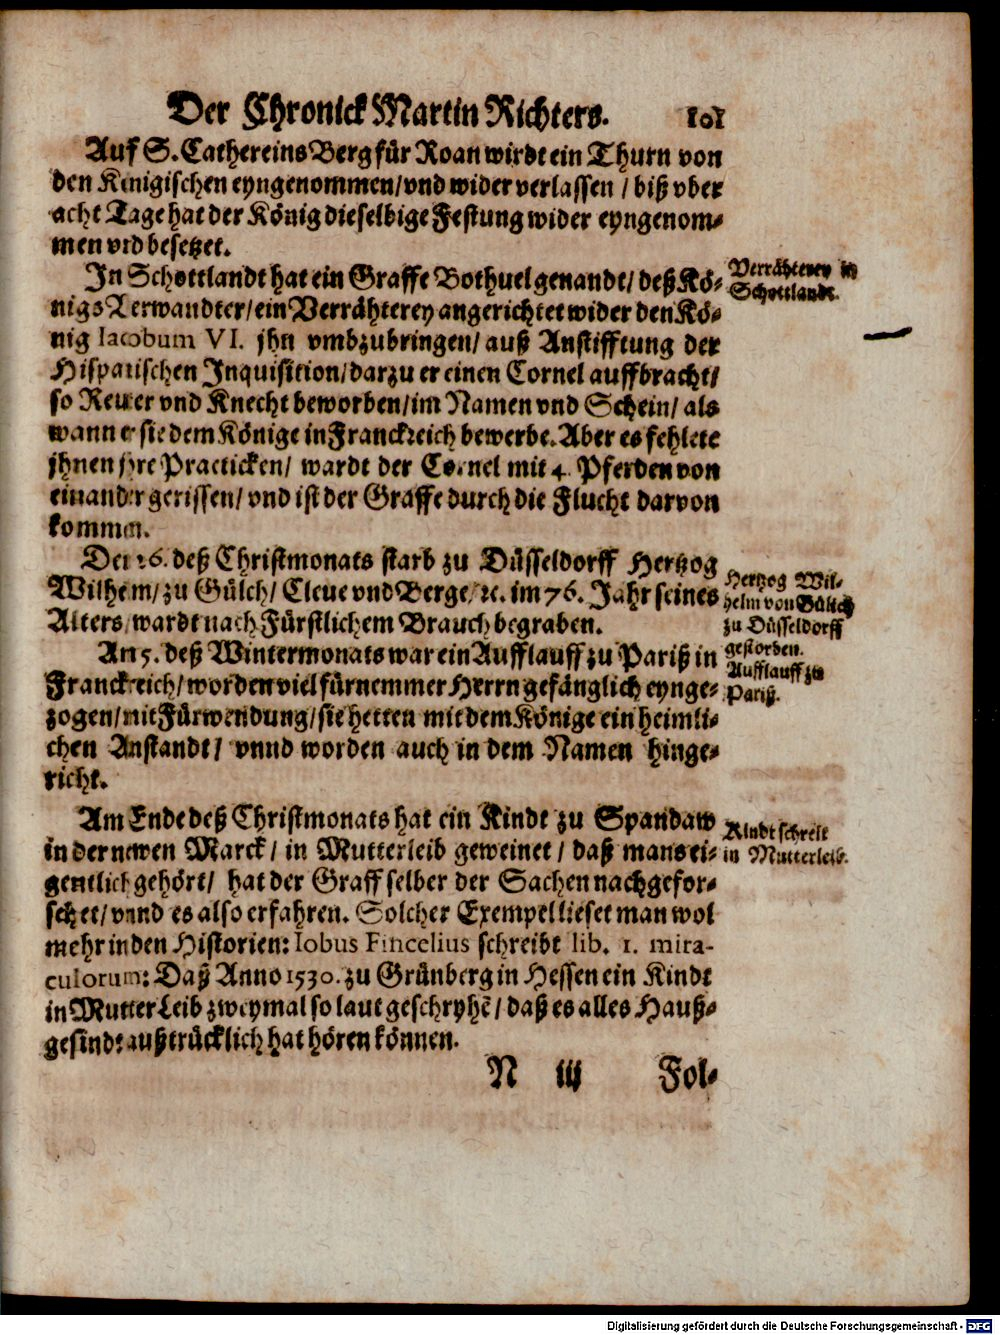 Der Chronick Martin Richters. 101
Auf S. Cathereins Berg für Roan wirdt ein Thurn von
den Königischen eyngenommen / vnd wider verlassen / biß vber
acht Tage hat der König dieselbige Festung wider eyngenom-
men vnd besetzet.
In Schottlandt hat ein Graffe Bothuel genandt / deß Kö-
nigs Verwandter / ein Verrähterey angerichtet wider den Kö-
nig Iacobum VI. jhn vmbzubringen / auß Anstifftung der
Hispanischen Inquisition / darzu er einen Cornel auffbracht /
so Reuter vnd Knecht beworben / im Namen vnd Schein / als
wann er sie dem Könige in Franckreich bewerbe. Aber es fehlete
jhnen jhre Practicken / wardt der Cornel mit 4. Pferden von
einander gerissen / vnd ist der Graffe durch die Flucht darvon
kommen.
Verrähterey in
Schottlandt.
Den 26. deß Christmonats starb zu Düsseldorff Hertzog
Wilhelm / zu Gülch / Cleue vnd Berge / ꝛc. im 76. Jahr seines
Alters / wardt nach Fürstlichem Brauch begraben.
Hertzog Wil-
helm von Gülich
zu Düsseldorff
gestorben.
An 5. deß Wintermonats war ein Aufflauff zu Pariß in
Franckreich / worden viel fürnemmer Herrn gefänglich eynge-
zogen / mit Fürwendung / sie hetten mit dem Könige ein heimli-
chen Anstandt / vnnd worden auch in dem Namen hinge-
richt.
Aufflauff zu
Pariß.
Am Ende deß Christmonats hat ein Kindt zu Spandaw
in der newen Marck / in Mutterleib geweinet / daß mans ei-
gentlich gehört / hat der Graff selber der Sachen nachgefor-
schet / vnnd es also erfahren. Solcher Exempel lieset man wol
mehr in den Historien: Iobus Fincelius schreibt lib. 1. mira-
culorum: Daß Anno 1530. zu Grünberg in Hessen ein Kindt
in Mutter Leib zweymal so laut geschryhẽ / daß es alles Hauß-
gesindt außtrücklich hat hören können.
Kindt schreit
in Mutterleib.
N iij Fol-
Digitalisierung gefördert durch die Deutsche Forschungsgemeinschaft - DFG